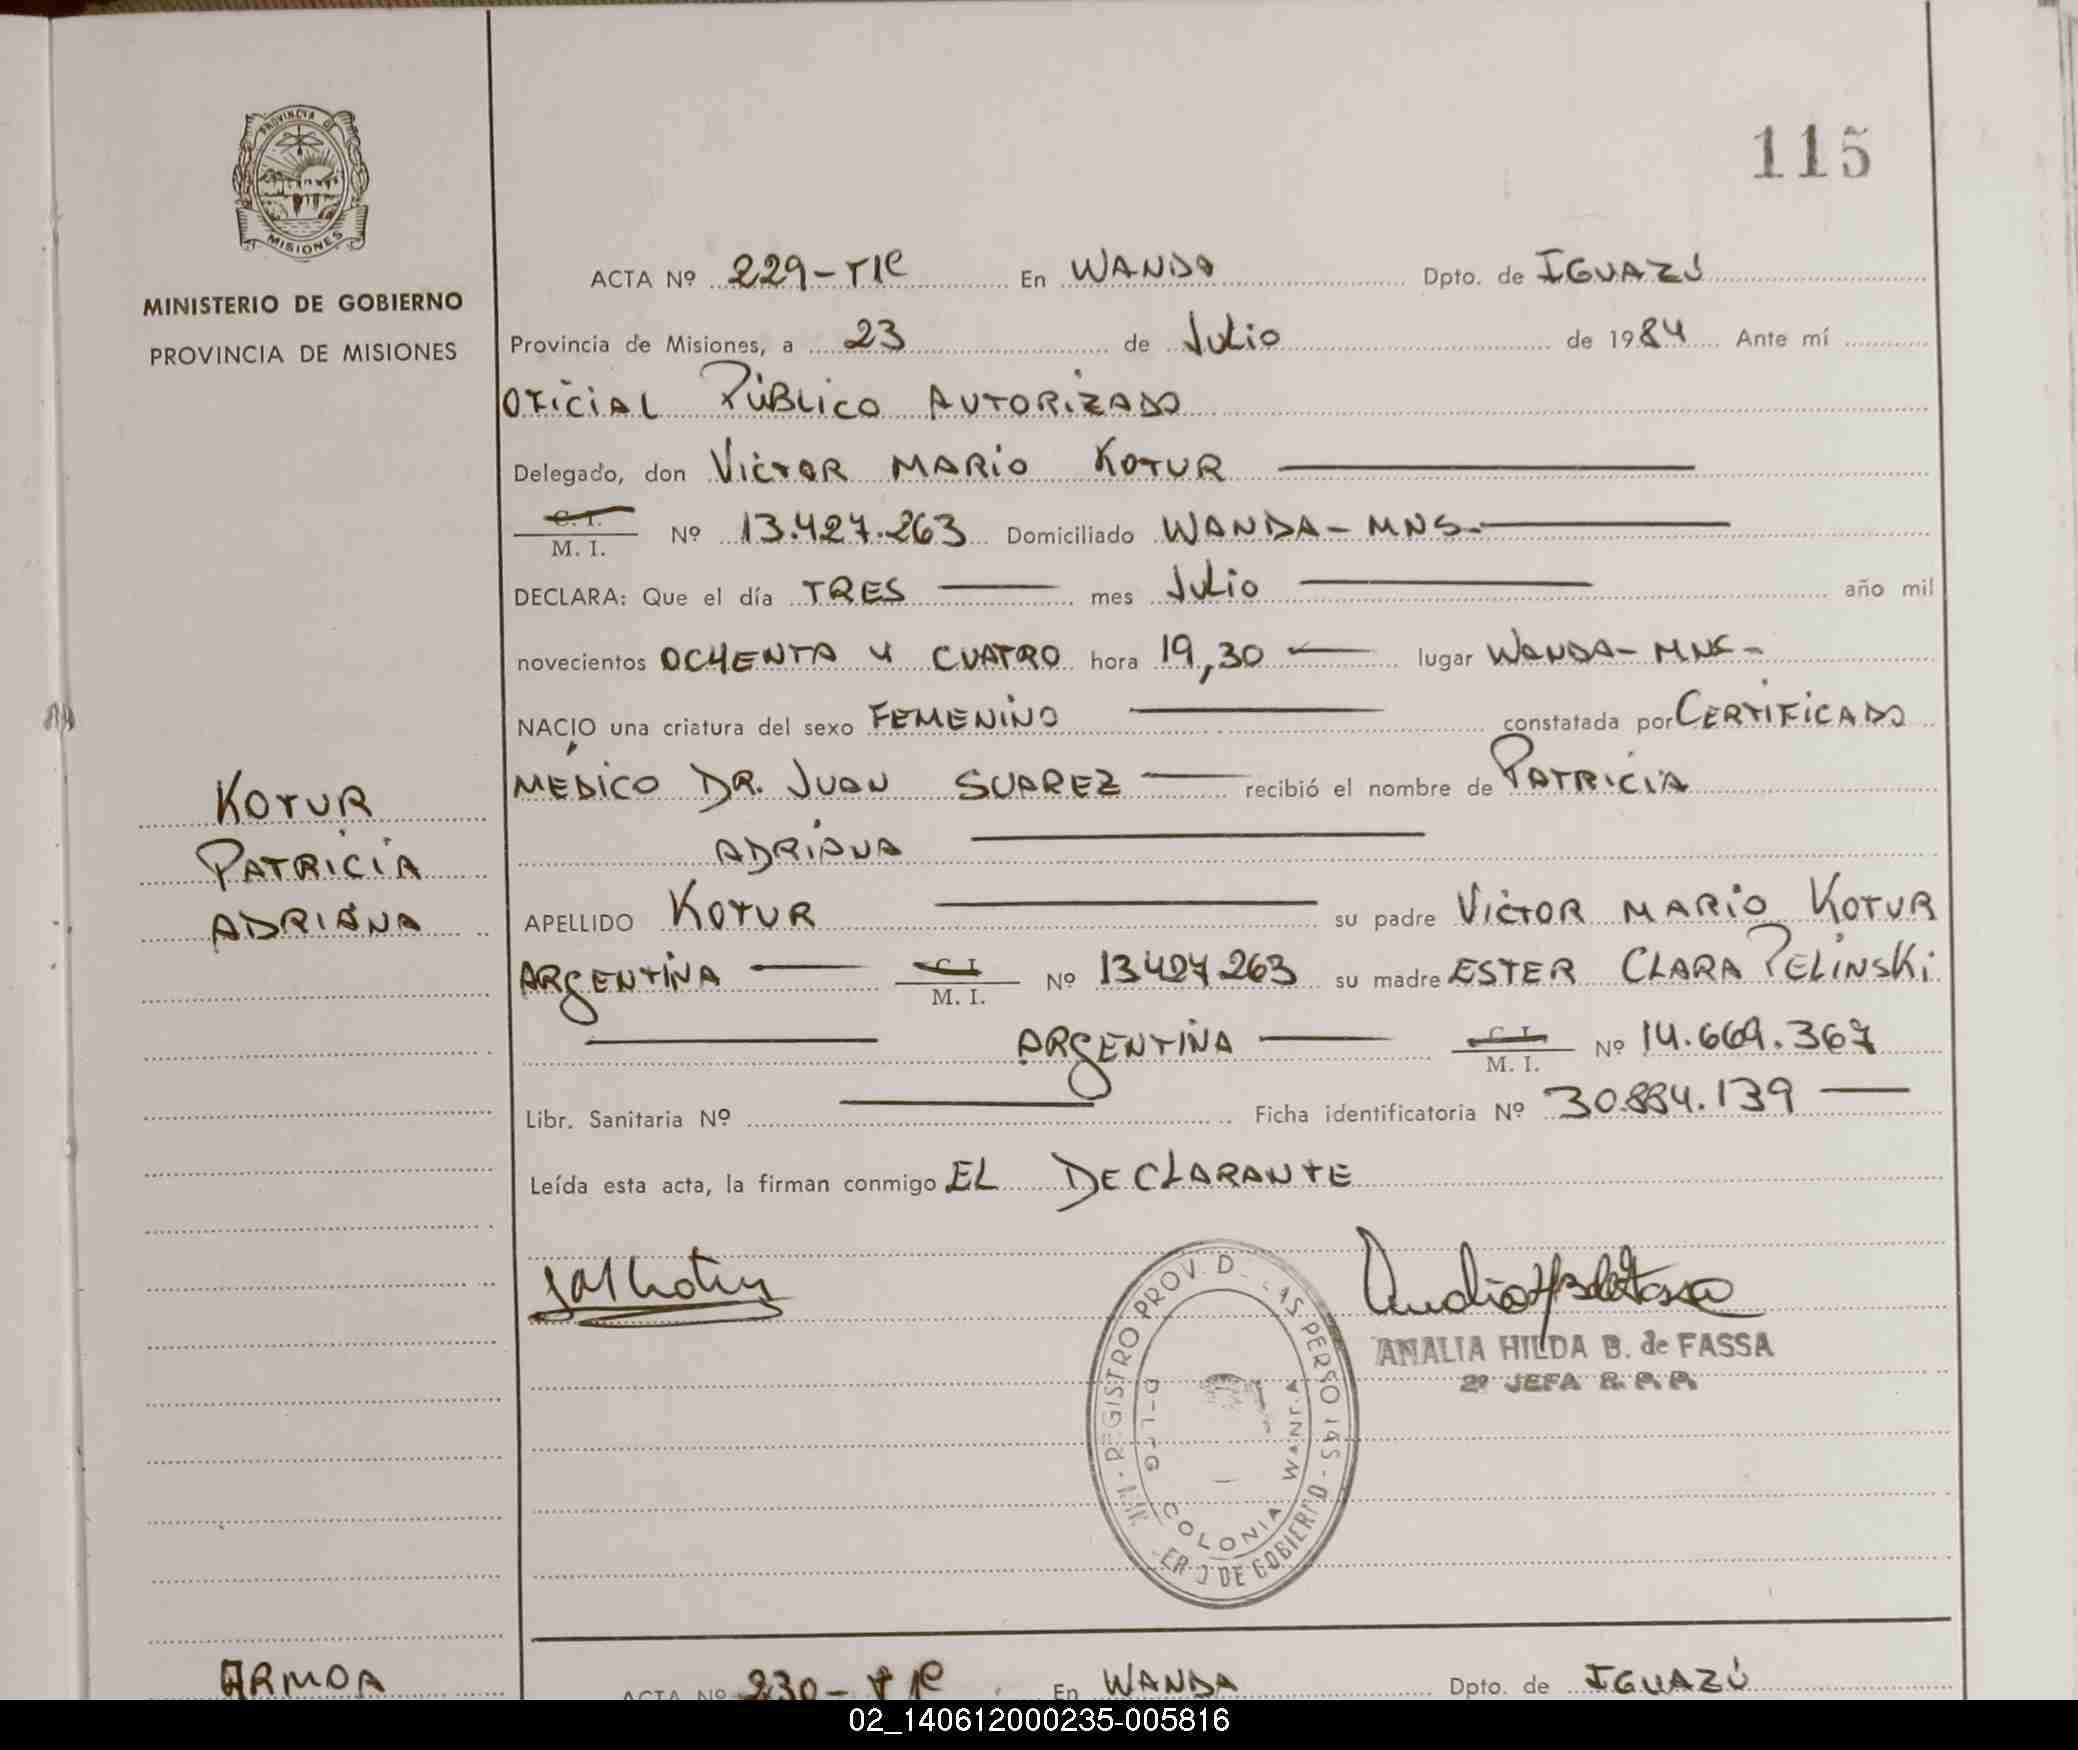 PROVINCIA DE
MISIONES
MINISTERIO DE GOBIERNO
PROVINCIA DE MISIONES
115
ACTA Nº 229-TIC En WANDA Dpto. de IGUAZÚ
Provincia de Misiones, a 23 de Julio de 1984 Ante mí
OFICIAL PÚBLICO AUTORIZADO
Delegado, don VICTOR MARIO KOTUR
C. I.
M. I. Nº 13.427.263 Domiciliado WANDA - MNS-
DECLARA: Que el día TRES mes Julio año mil
novecientos OCHENTA Y CUATRO hora 19,30 lugar WANDA - MNS -
NACIO una criatura del sexo FEMENINO constatada por CERTIFICADO
MÉDICO DR. JUAN SUAREZ recibió el nombre de PATRICIA
ADRIANA
KOTUR
PATRICIA
ADRIANA
APELLIDO KOTUR su padre VICTOR MARIO KOTUR
ARGENTINA C. I. M. I. Nº 13427.263 su madre ESTER CLARA PELINSKI
ARGENTINA C. I. M. I. Nº 14.669.367
Libr. Sanitaria Nº Ficha identificatoria Nº 30.884.139
Leída esta acta, la firman conmigo EL DECLARANTE
REGISTRO PROV. D LAS PERSO AS - ER O DE GOBIERNO
COLONIA WANDA
AMALIA HILDA B. de FASSA
2º JEFA R. P. P.
ARMOA
ACTA Nº 230 - En WANDA Dpto. de IGUAZÚ
02_140612000235-005816